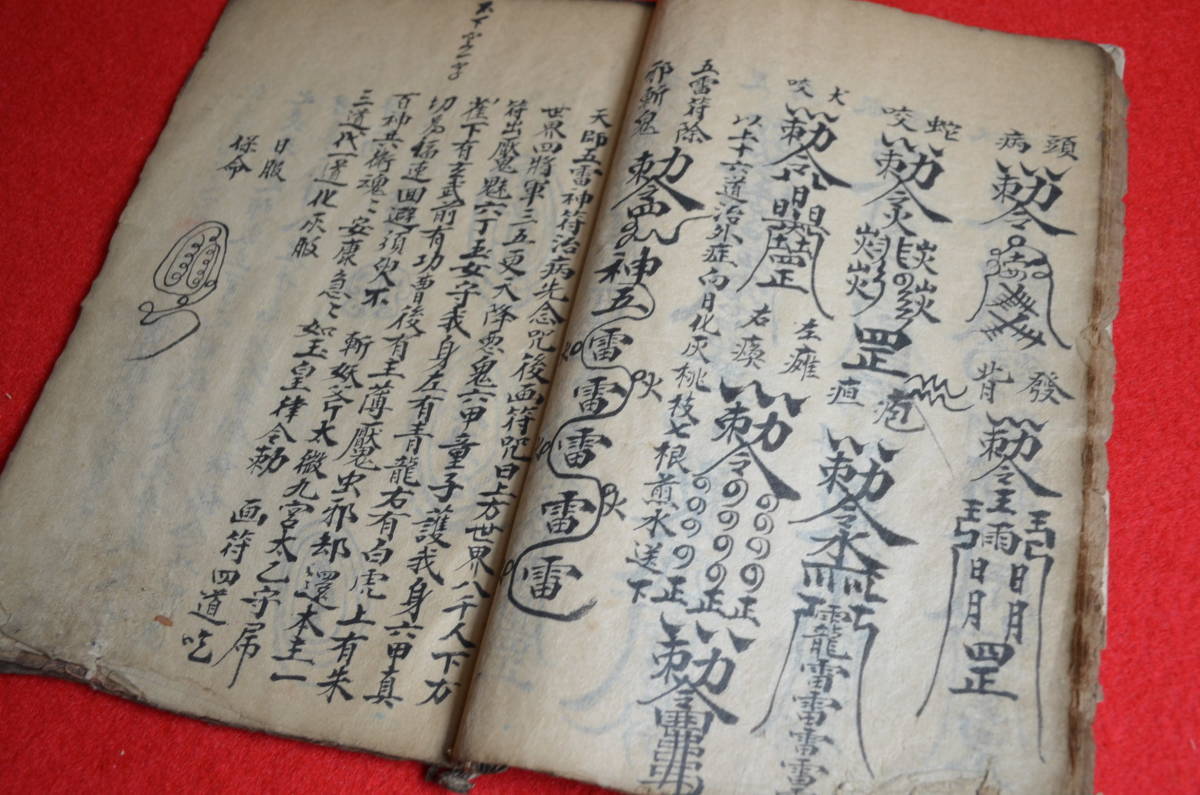 頭病
勅令
發背
勅令
日月 日月
罡
蛇咬
勅令
罡
疽 疱
勅令
靇雷雷雷雷
犬咬
勅令
左癱
右瘓
勅令
以上十六道治外症向日化灰桃枝七根煎水送下
勅令
五雷符除
邪斬鬼
勅令
神五雷雷雷雷雷
火 火
天師五雷神符治病先念咒後画符咒曰上方世界八千人下方
世界四將軍三五更天降惡鬼六甲童子護我身六甲真
符出壓鬼魅六丁玉女守我身左有青龍右有白虎上有朱
雀下有玄武前有功曹後有主薄壓魔虫邪却還本主一
切 福速回避須臾不 斬妖斧太微九宮太乙守
百神共衛魂〻安康急〻如玉皇律令勅 画符四道吃
三道代一道化灰服
日服
保命